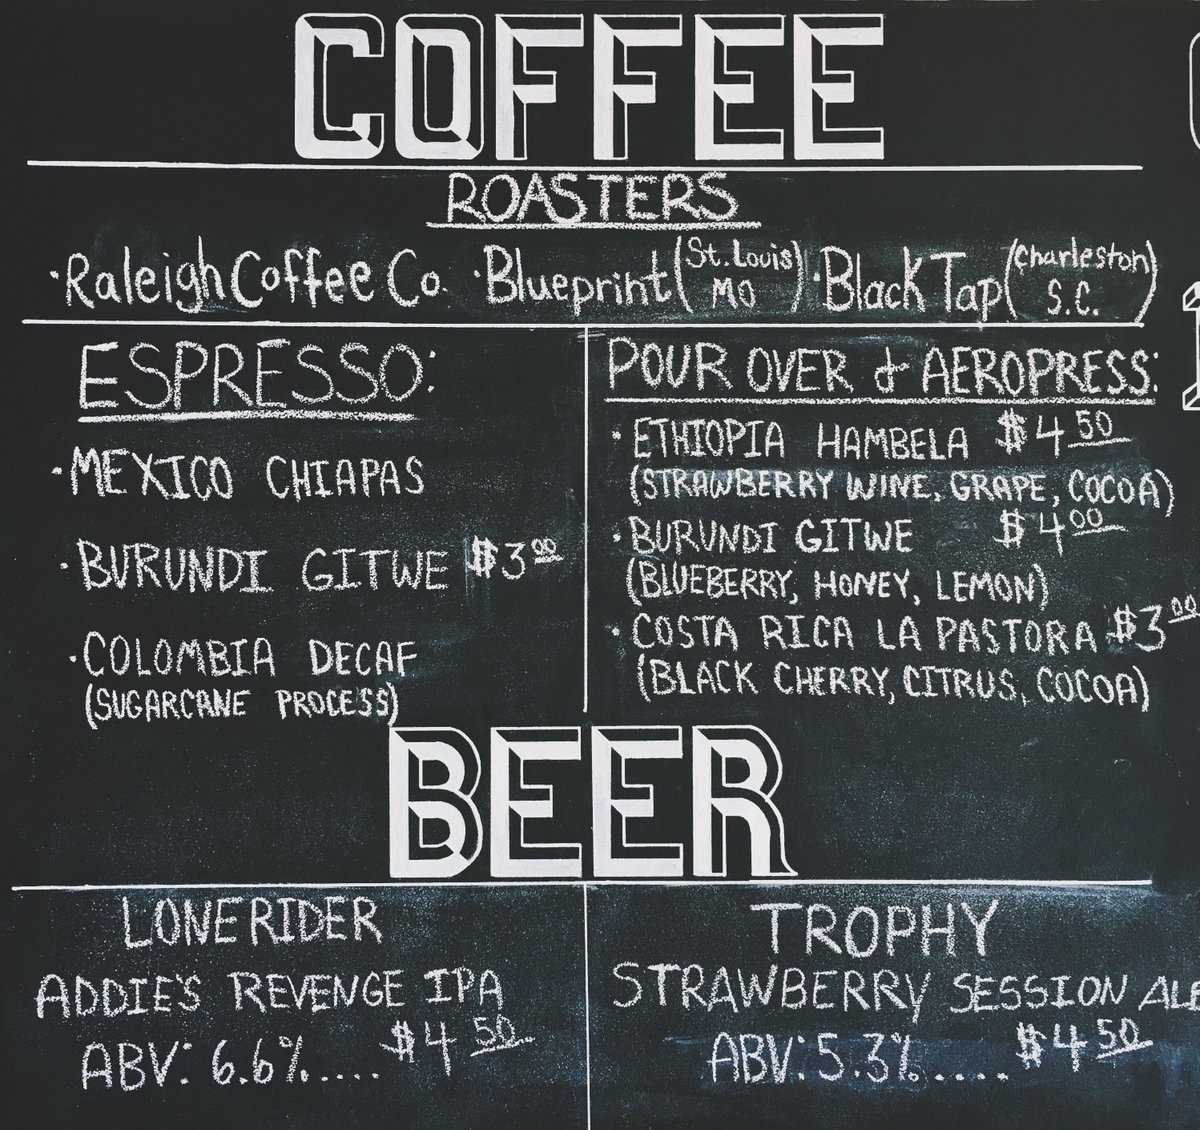 COFFEE
ROASTERS
·Raleigh Coffee Co. ·Blueprint (St. Louis MO) ·Black Tap (Charleston S.C.)
ESPRESSO:
·MEXICO CHIAPAS
·BURUNDI GITWE $3.00
·COLOMBIA DECAF
(SUGARCANE PROCESS)
POUR OVER & AEROPRESS:
·ETHIOPIA HAMBELA $4.50
(STRAWBERRY WINE, GRAPE, COCOA)
·BURUNDI GITWE $4.00
(BLUEBERRY, HONEY, LEMON)
·COSTA RICA LA PASTORA $3.00
(BLACK CHERRY, CITRUS, COCOA)
BEER
LONERIDER
ADDIE'S REVENGE IPA
ABV: 6.6%..... $4.50
TROPHY
STRAWBERRY SESSION ALE
ABV: 5.3%..... $4.50